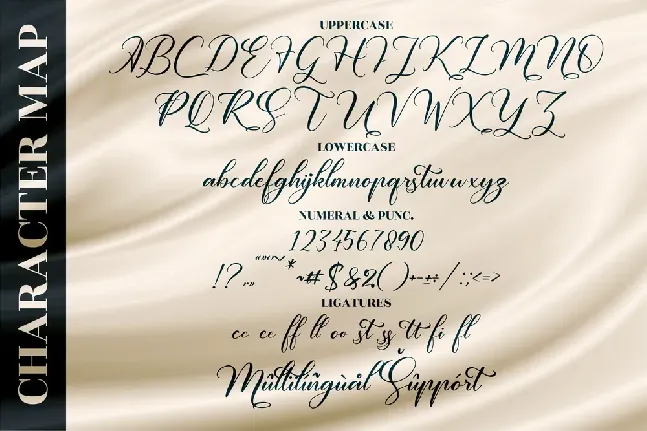 CHARACTER MAP
UPPERCASE
ABCDEFGHIJKLMNO
PQRSTUVWXYZ
LOWERCASE
abcdefghijklmnopqrstuvwxyz
NUMERAL & PUNC.
1234567890
!?.,,""''~*~#$&2()+-±÷/:;<=>
LIGATURES
cc ee ff ll oo st ss tt fi fl
Mûltilíñgùàl Šûppórt